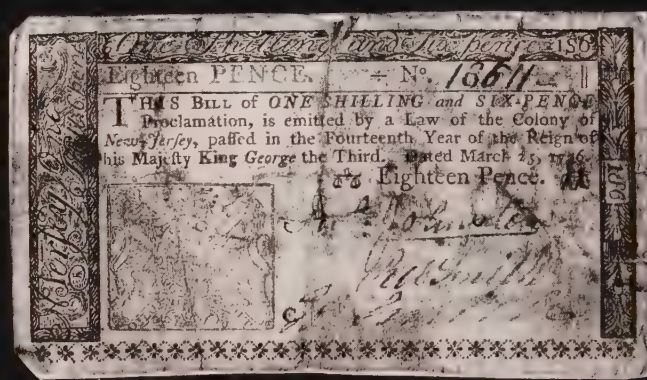 One Shilling and Six-pence 1S6
Eighteen PENCE. Nº 18611
THIS BILL of ONE SHILLING and SIX-PENCE
Proclamation, is emitted by a Law of the Colony of
New-Jersey, paſſed in the Fourteenth Year of the Reign of
his Majeſty King George the Third. Dated March 25, 1776.
Eighteen Pence.
Johnston
Smith
C
1S6